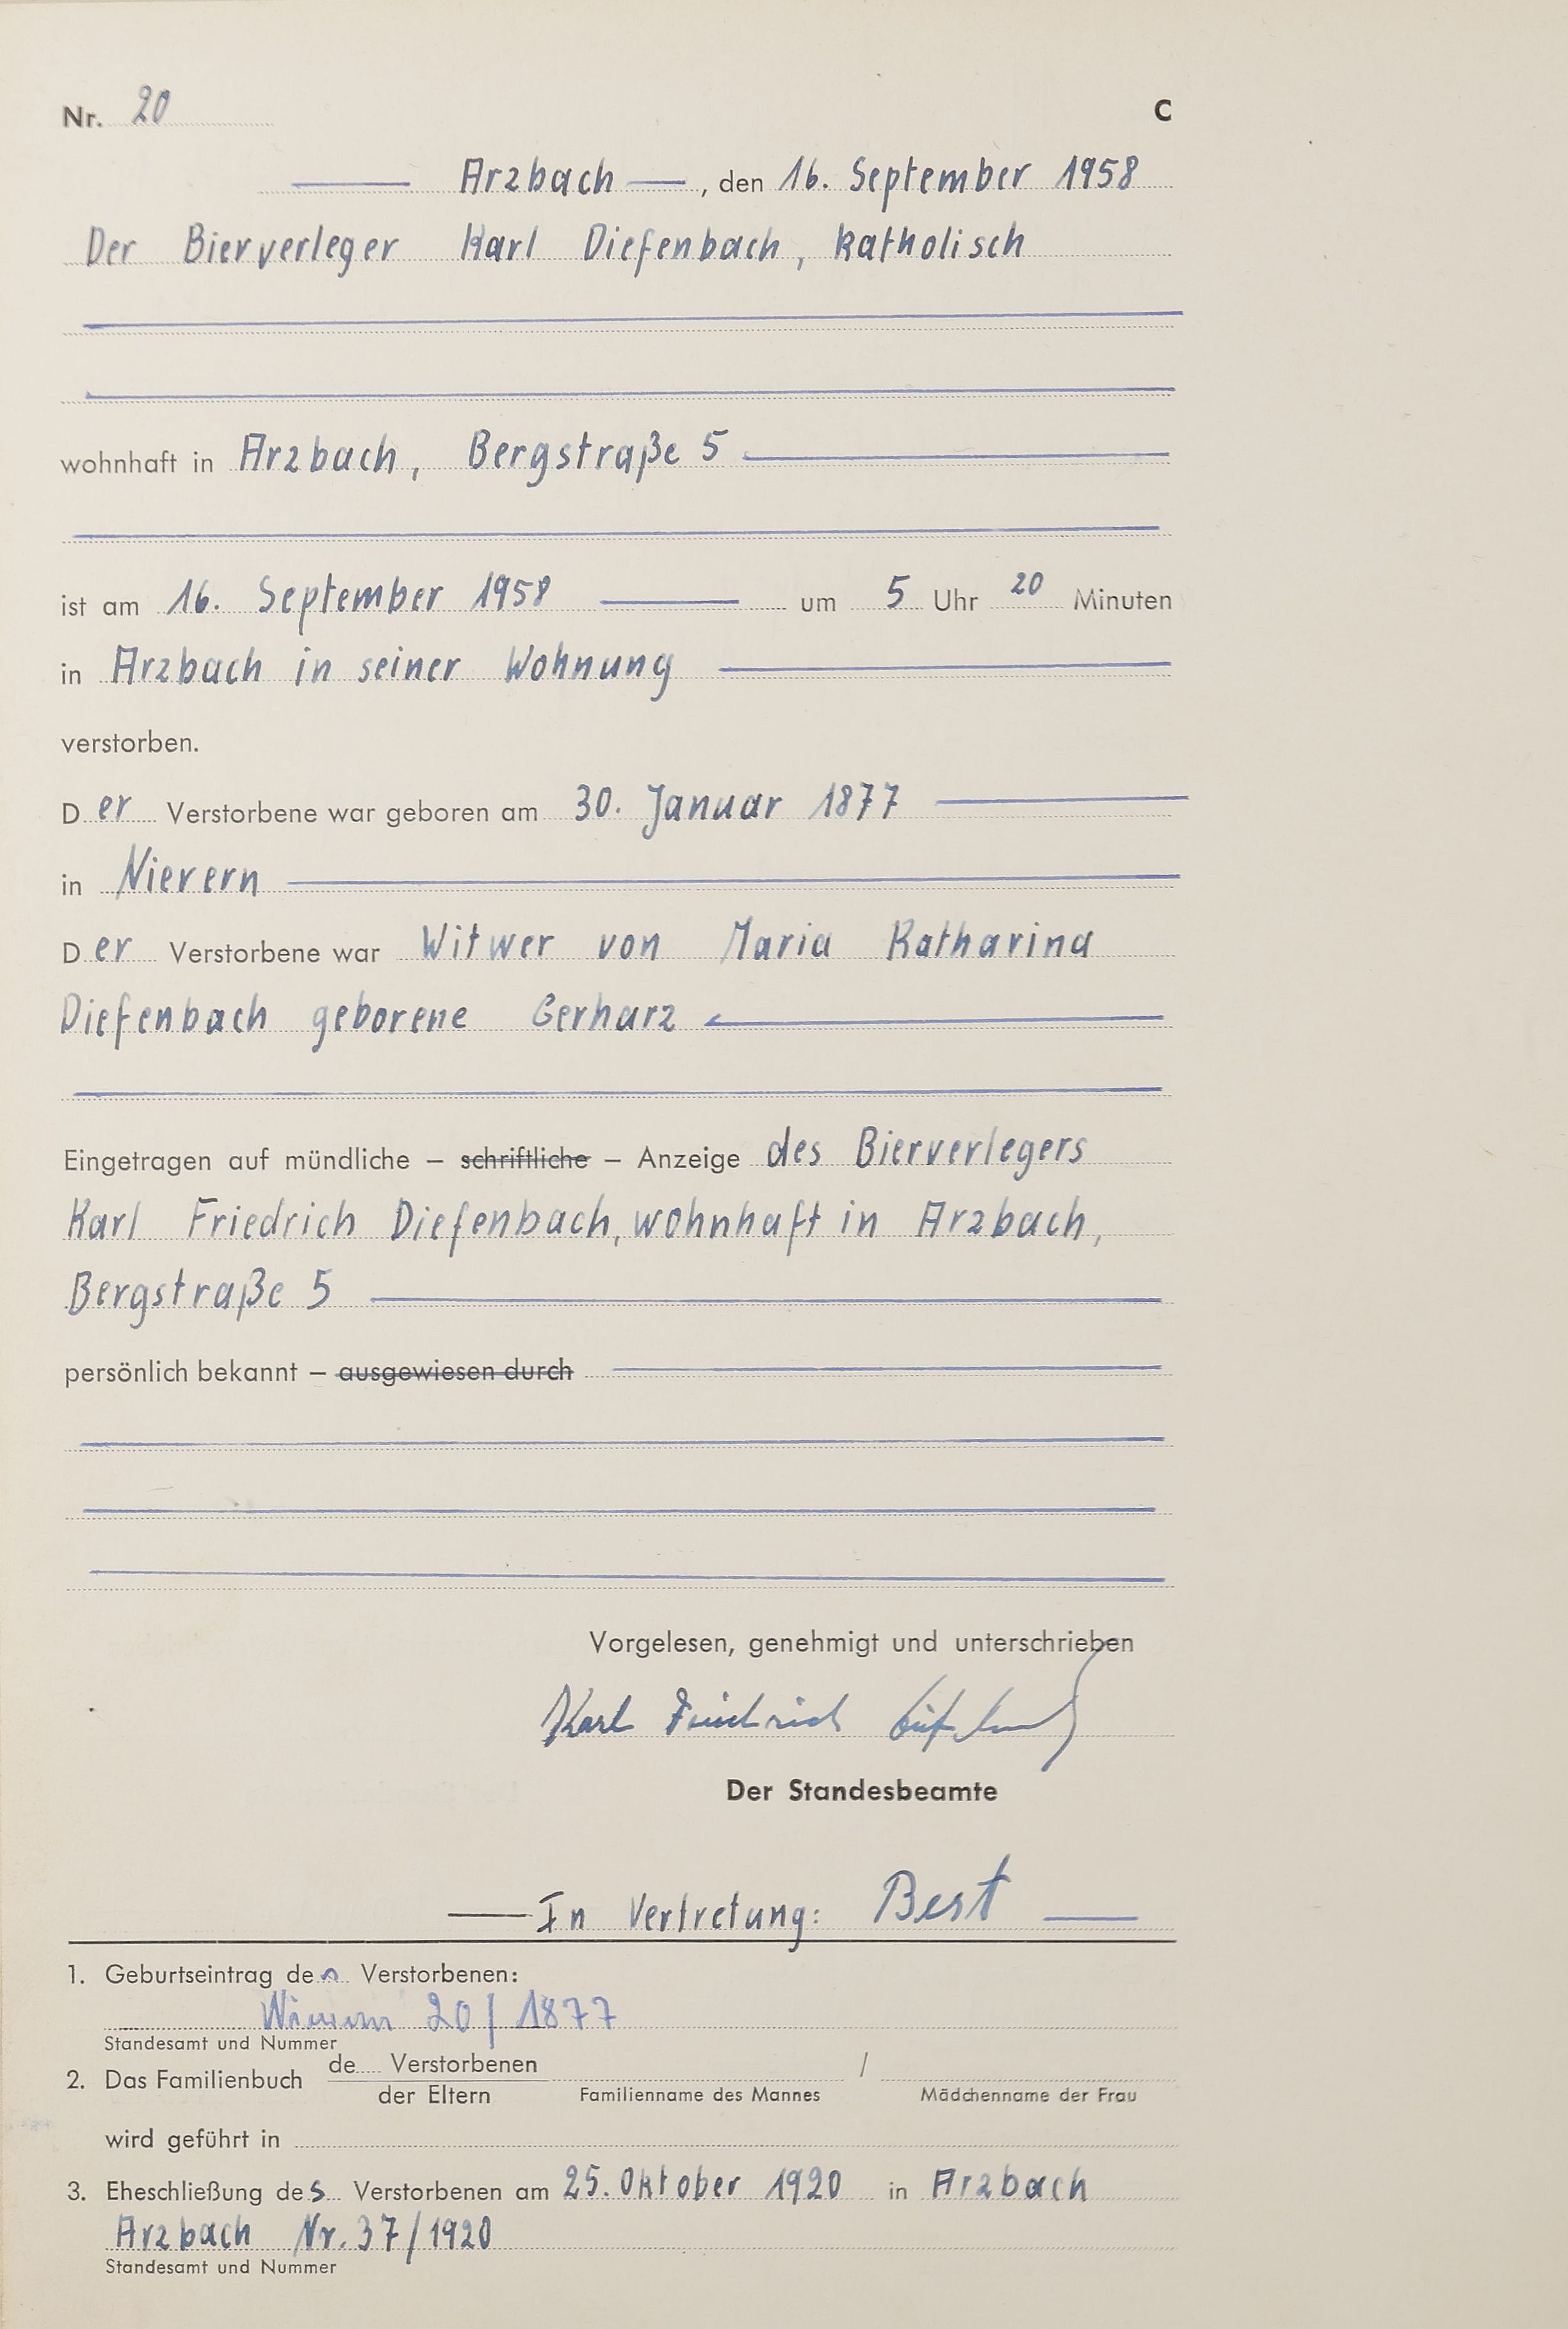 Nr. 20 C
Arzbach, den 16. September 1958
Der Bierverleger Karl Diefenbach, katholisch
wohnhaft in Arzbach, Bergstraße 5
ist am 16. September 1958 um 5 Uhr 20 Minuten
in Arzbach in seiner Wohnung
verstorben.
Der Verstorbene war geboren am 30. Januar 1877
in Nievern
Der Verstorbene war Witwer von Maria Katharina
Diefenbach geborene Gerharz
Eingetragen auf mündliche – schriftliche – Anzeige des Bierverlegers
Karl Friedrich Diefenbach, wohnhaft in Arzbach,
Bergstraße 5
persönlich bekannt – ausgewiesen durch
Vorgelesen, genehmigt und unterschrieben
Karl Friedrich Diefenbach
Der Standesbeamte
In Vertretung: Best
1. Geburtseintrag des Verstorbenen:
20/1877
Standesamt und Nummer
de Verstorbenen
2. Das Familienbuch /
der Eltern Familienname des Mannes Mädchenname der Frau
wird geführt in
3. Eheschließung des Verstorbenen am 25. Oktober 1920 in Arzbach
Arzbach Nr. 37/1920
Standesamt und Nummer